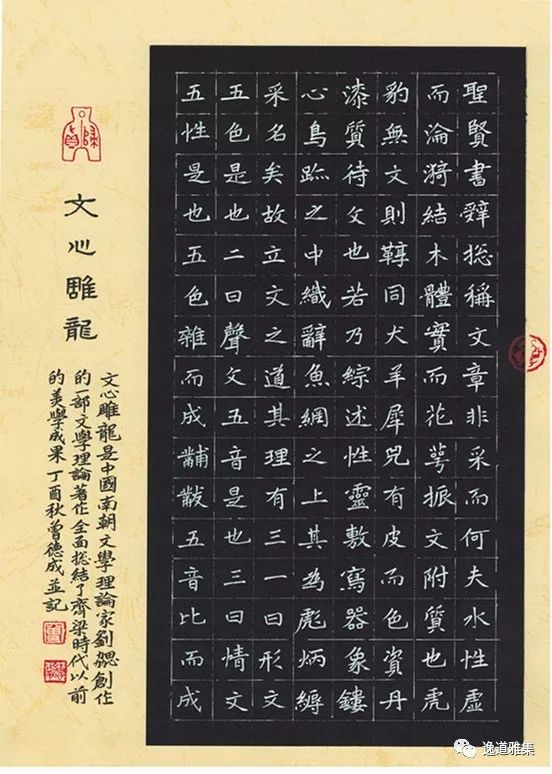 聖賢書辤捴稱文章非采而何夫水性虛
而淪漪結木體實而花萼振文附質也虎
豹無文則鞟同犬羊犀兕有皮而色資丹
漆質待文也若乃綜述性靈敷寫器象鏤
心鳥跡之中織辭魚網之上其為彪炳縟
采名矣故立文之道其理有三一曰形文
五色是也二曰聲文五音是也三曰情文
五性是也五色雜而成黼黻五音比而成
文心雕龍
文心雕龍是中國南朝文學理論家劉勰創作
的一部文學理論著作全面捴結了齊梁時代以前
的美學成果丁酉秋曾德成並記
逸道雅集